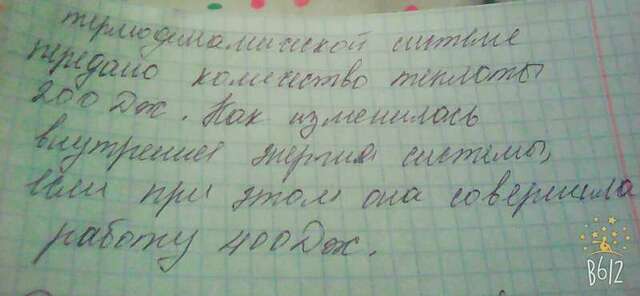 термодинамической системе
передано количество теплоты
200 Дж. Как изменилась
внутренняя энергия системы,
если при этом она совершила
работу 400 Дж.
B612